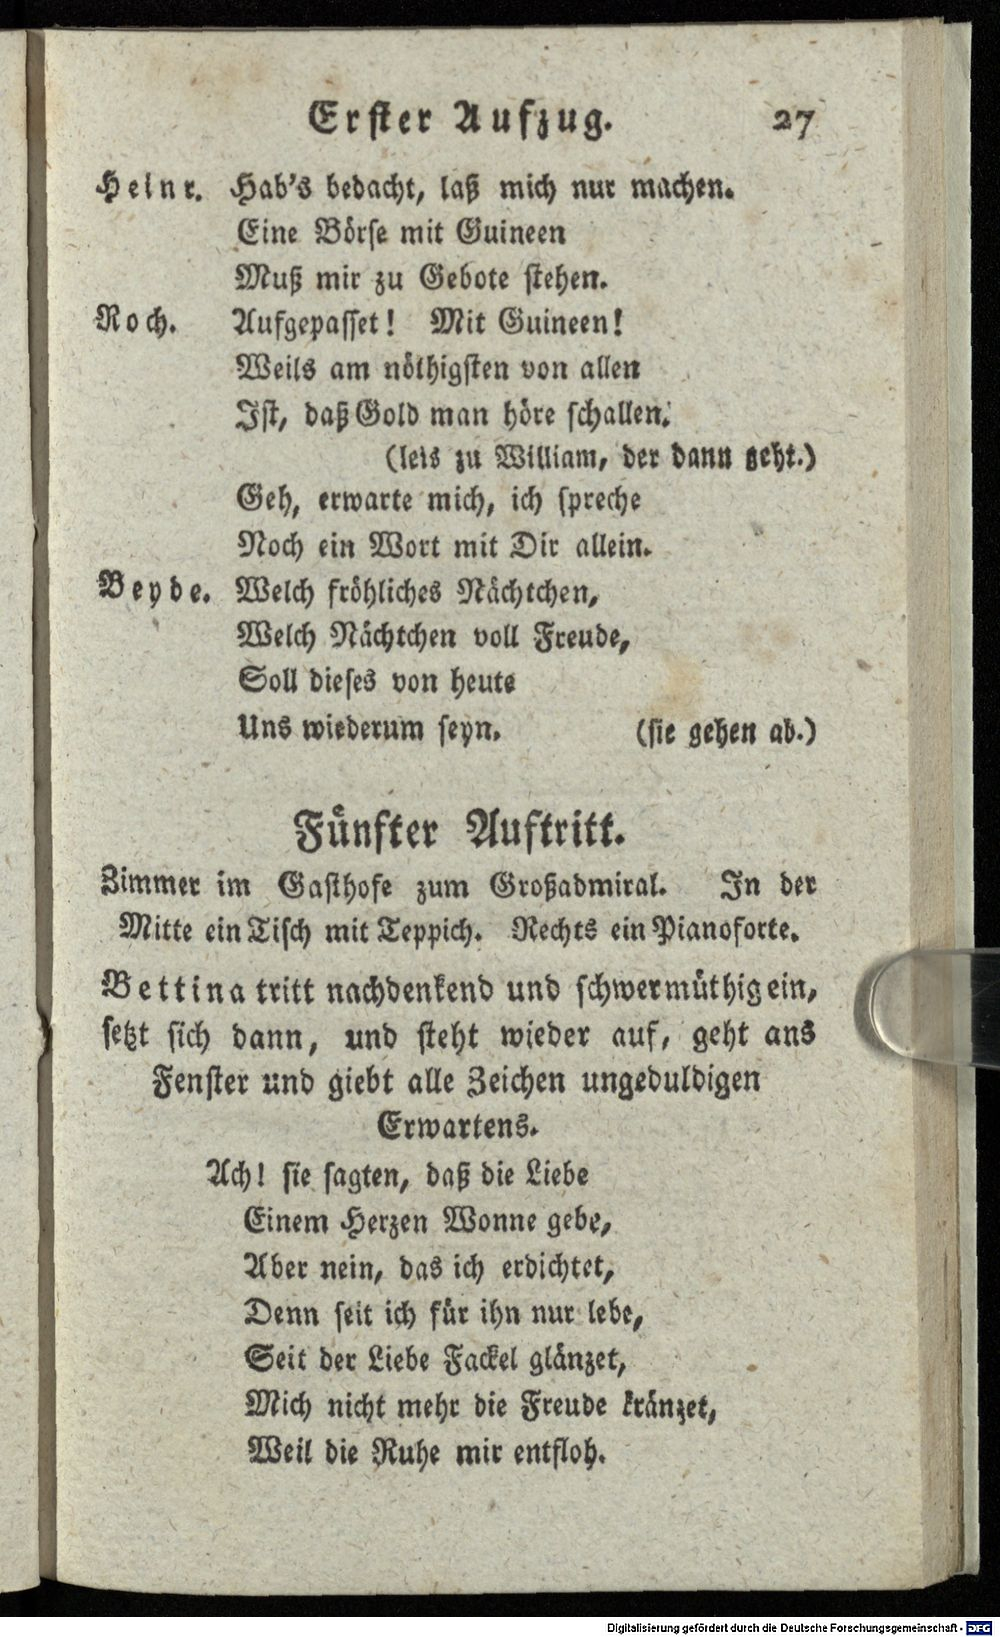 Erster Aufzug. 27
Heinr. Hab's bedacht, laß mich nur machen.
Eine Börse mit Guineen
Muß mir zu Gebote stehen.
Roch. Aufgepasset! Mit Guineen!
Weils am nöthigsten von allen
Ist, daß Gold man höre schallen.
(leis zu William, der dann geht.)
Geh, erwarte mich, ich spreche
Noch ein Wort mit Dir allein.
Beyde. Welch fröhliches Nächtchen,
Welch Nächtchen voll Freude,
Soll dieses von heute
Uns wiederum seyn. (sie gehen ab.)
Fünfter Auftritt.
Zimmer im Gasthofe zum Großadmiral. In der
Mitte ein Tisch mit Teppich. Rechts ein Pianoforte.
Bettina tritt nachdenkend und schwermüthig ein,
setzt sich dann, und steht wieder auf, geht ans
Fenster und giebt alle Zeichen ungeduldigen
Erwartens.
Ach! sie sagten, daß die Liebe
Einem Herzen Wonne gebe,
Aber nein, das ich erdichtet,
Denn seit ich für ihn nur lebe,
Seit der Liebe Fackel glänzet,
Mich nicht mehr die Freude kränzet,
Weil die Ruhe mir entfloh.
Digitalisierung gefördert durch die Deutsche Forschungsgemeinschaft - DFG